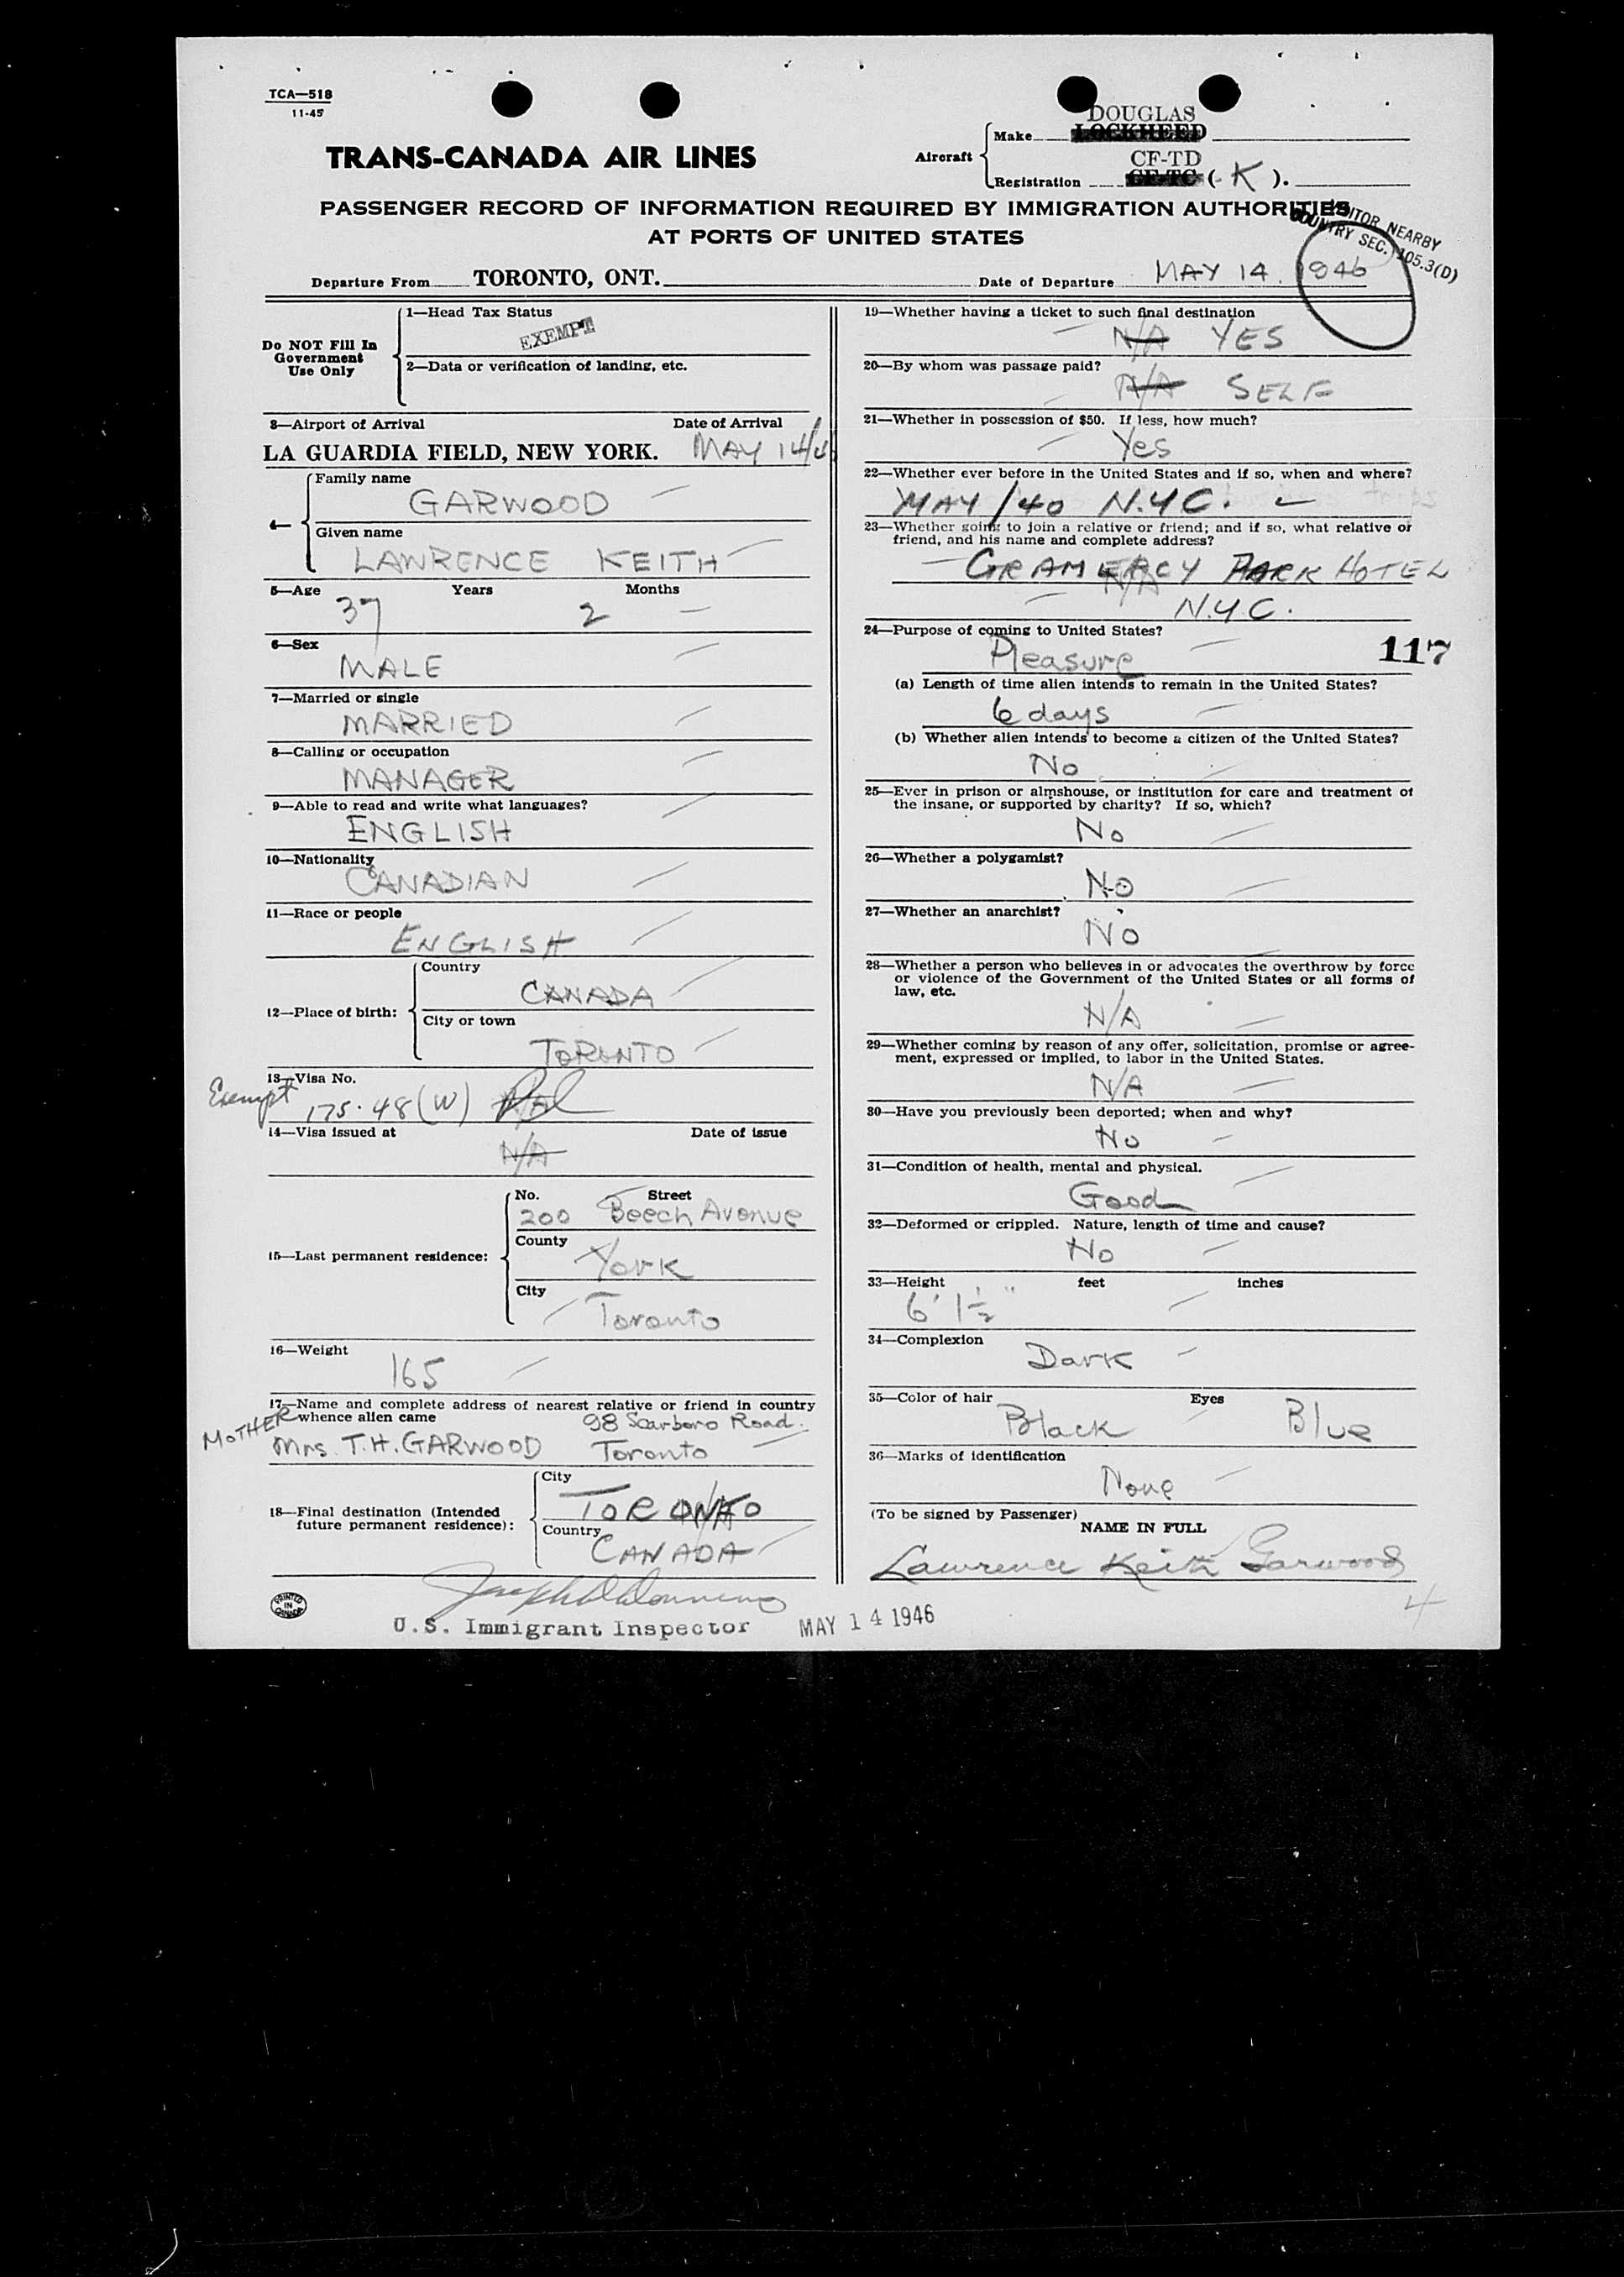 TCA—518
11-45
DOUGLAS
Make LOCKHEED
TRANS-CANADA AIR LINES
Aircraft
CF-TD
Registration CF-TC (-K).
PASSENGER RECORD OF INFORMATION REQUIRED BY IMMIGRATION AUTHORITIES
AT PORTS OF UNITED STATES
VISITOR NEARBY
COUNTRY SEC. 105.3(D)
Departure From TORONTO, ONT. Date of Departure MAY 14. 1946
Do NOT Fill In
Government
Use Only
1—Head Tax Status
EXEMPT
2—Data or verification of landing, etc.
3—Airport of Arrival Date of Arrival
LA GUARDIA FIELD, NEW YORK. MAY 14/
4—
Family name
GARWOOD
Given name
LAWRENCE KEITH
5—Age Years Months
37 2
6—Sex
MALE
7—Married or single
MARRIED
8—Calling or occupation
MANAGER
9—Able to read and write what languages?
ENGLISH
10—Nationality
CANADIAN
11—Race or people
ENGLISH
12—Place of birth:
Country
CANADA
City or town
TORONTO
13—Visa No.
Exempt 175.48(W)
14—Visa issued at Date of issue
N/A
15—Last permanent residence:
No. Street
200 Beech Avenue
County
York
City
Toronto
16—Weight
165
17—Name and complete address of nearest relative or friend in country
whence alien came 98 Scarboro Road.
MOTHER
Mrs. T.H. GARWOOD Toronto
18—Final destination (Intended
future permanent residence):
City
TORONTO
N/A
Country
CANADA
19—Whether having a ticket to such final destination
N/A YES
20—By whom was passage paid?
N/A SELF
21—Whether in possession of $50. If less, how much?
Yes
22—Whether ever before in the United States and if so, when and where?
MAY/40 N.Y.C.
23—Whether going to join a relative or friend; and if so, what relative or
friend, and his name and complete address?
GRAMERCY PARK HOTEL
N/A
N.Y.C.
24—Purpose of coming to United States?
Pleasure
117
(a) Length of time alien intends to remain in the United States?
6 days
(b) Whether alien intends to become a citizen of the United States?
No
25—Ever in prison or almshouse, or institution for care and treatment of
the insane, or supported by charity? If so, which?
No
26—Whether a polygamist?
No
27—Whether an anarchist?
No
28—Whether a person who believes in or advocates the overthrow by force
or violence of the Government of the United States or all forms of
law, etc.
N/A
29—Whether coming by reason of any offer, solicitation, promise or agree-
ment, expressed or implied, to labor in the United States.
N/A
30—Have you previously been deported; when and why?
No
31—Condition of health, mental and physical.
Good
32—Deformed or crippled. Nature, length of time and cause?
No
33—Height feet inches
6' 1½"
34—Complexion
Dark
35—Color of hair Eyes
Black Blue
36—Marks of identification
None
(To be signed by Passenger)
NAME IN FULL
Lawrence Keith Garwood
PRINTED IN CANADA
U.S. Immigrant Inspector MAY 14 1946
4